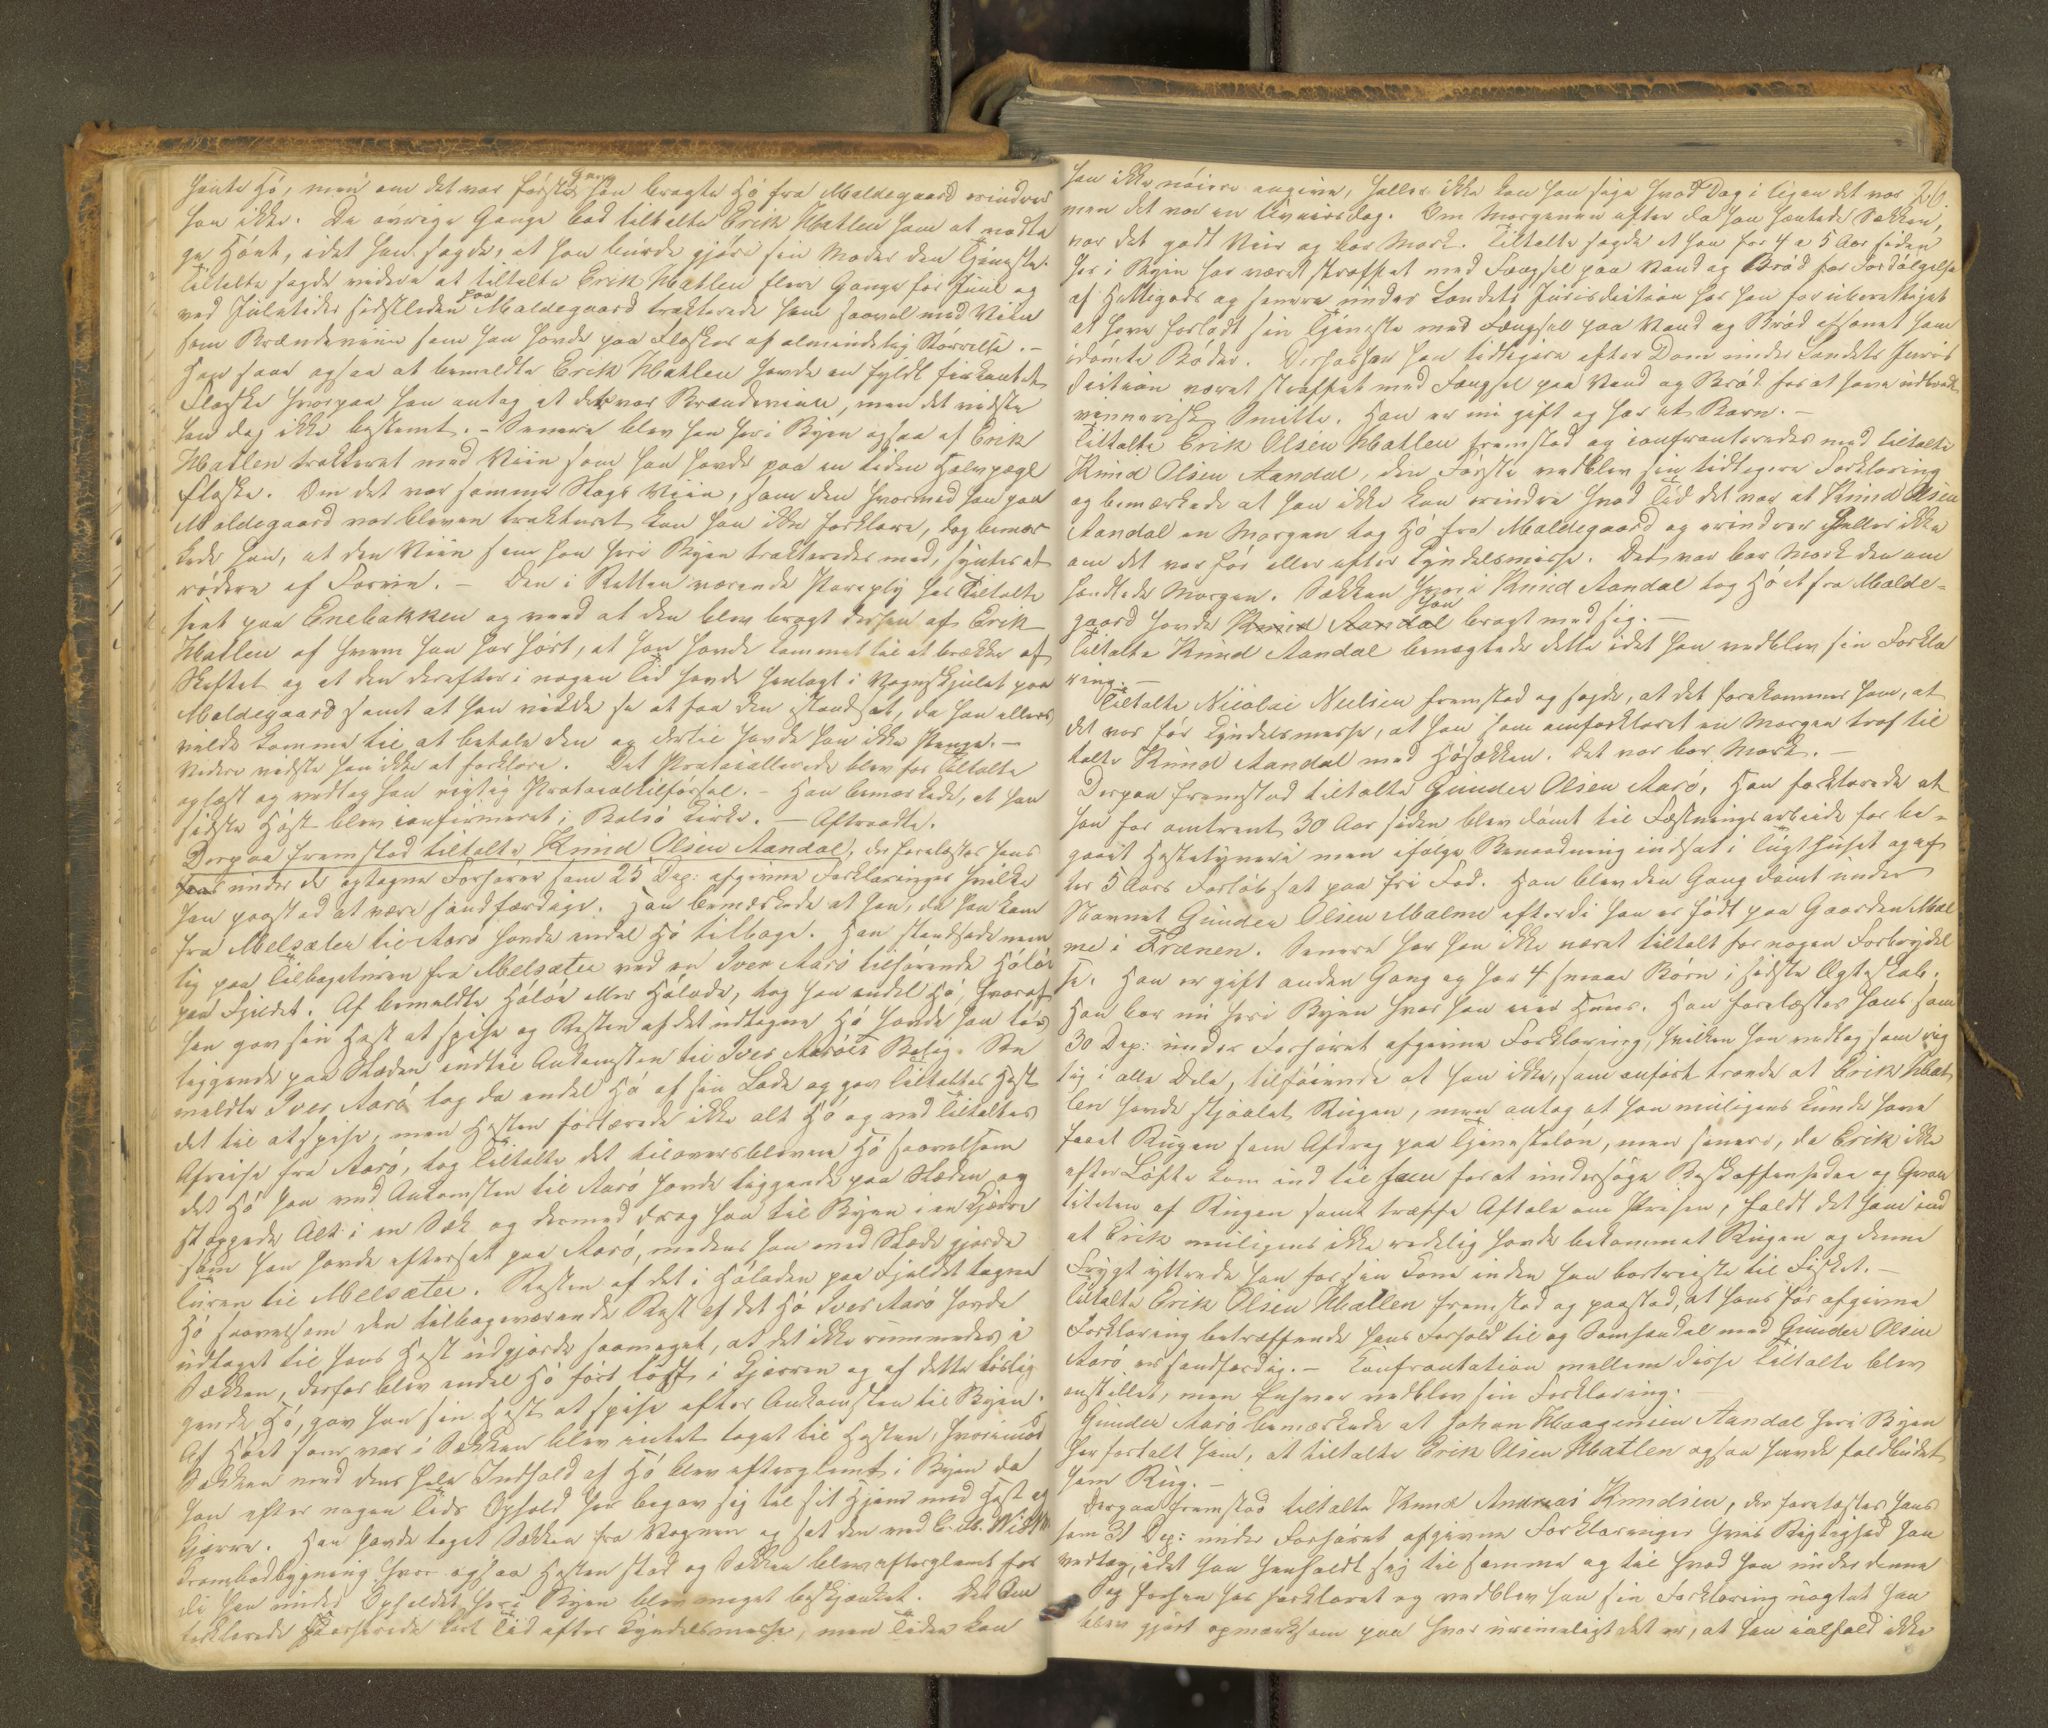 hente Hö, men om det var første Gang han bragte Hö fra Moldegaard erindrer
han ikke. De øvrige Gange bad tiltalte Erik Hatlen ham at modta
ge Höet, idet han sagde, at han burde gjöre sin Moder den Tjeneste.
Tiltalte sagde videre at tiltalte Erik Hatlen flere Gange för Juul og
ved Juletider sidstleden paa Moldegaard trakterede ham saavel med Viin
som Brændeviin som han havde paa Flasker af almindelig Störrelse. –
Han saae ogsaa at bemeldte Erik Hatlen havde en fyldt firkantet
Flaske hvorpaa han antog at det var Brændeviin, men det vidste
han dog ikke bestemt. – Senere blev han her i Byen ogsaa af Erik
Hatlen trakteret med Viin som han havde paa en liden Halvpægl
flaske. Om det var samme Slags Viin, som den hvormed han paa
Moldegaard var bleven trakteret kan han ikke forklare, dog bemær
kede han, at den Viin som han her i Byen trakteredes med, syntes at
rödere af Farve. – Den i Retten værende Paraply har Tiltalte
seet paa Enebakken og veed at den blev bragt dertil af Erik
Hatlen af hvem han har hørt, at han havde kommet til at brække af
Skaftet og at den derefter i nogen Tid havde henlagt i Vognskjulet paa
Moldegaard samt at han vilde se at faa den istandsat, da han ellers
vilde komme til at betale den og dertil havde han ikke Penge. –
Videre vidste han ikke at forklare. Det Protocollerede blev for Tiltalte
oplæst og vedtog han rigtig Protocoltilförsel. – Han bemærkede, at han
sidste Höst blev confirmeret i Bolsö Kirke. – Aftraadte.
Derpaa fremstod tiltalte Knud Olsen Aandal, der forelæstes hans
under de optagne Forhörer som 25 Dep: afgivne Forklaringer hvilke
han paastod at være sandfærdige. Han bemærkede at han, da han kom
fra Melsæter til Aarö havde endel Hö tilbage. Han standsede nem
lig paa Tilbageturen fra Melsæter ved en Iver Aarö tilhörende Hölöe
paa Fjeldet. Af bemeldte Hölöe eller Hölade, tog han endel Hö, hvoraf
han gav sin Hest at spise og Resten af det udtagne Hö havde han lös
liggende paa Slæden indtil Ankomsten til Iver Aaröes Bolig. Be
meldte Iver Aarö tog da endel Hö af sin Lade og gav Tiltaltes Hest
det til at spise, men Hesten fortærede ikke alt Hö og ved Tiltaltes
Afreise fra Aarö, tog Tiltalte det tiloversblevne Hö saavelsom
det Hö han ved Ankomsten til Aarö havde liggende paa Slæden og
stoppede Alt i en Sæk og dermed drog han til Byen i en Kjærre
som han havde eftersat paa Aarö, medens han med Slæde gjorde
Turen til Melsæter. Resten af det i Höladen paa Fjeldet tagne
Hö saavelsom den tilbageværende Rest af det Hö Iver Aarö havde
udtaget til hans Hest udgjorde saameget, at det ikke rummedes i
Sækken, derfor blev endel Hö fört löst i Kjærren og af dette löslig
gende Hö, gav han sin Hest at spise efter Ankomsten til Byen.
Af Höet som var i Sækken blev intet taget til Hesten, hvorimod
Sækken med dens hele Indhold af Hö blev efterglemt i Byen da
han efter nogen Tids Ophold her begav sig til sit Hjem med Hest og
Kjærre. Han havde taget Sækken fra Vognen og sat den ved
Krambodbygning hvor ogsaa Hesten stod og Sækken blev efterglemt for
di han under Opholdet her i Byen blev meget beskjænket. Det Om
forklarede skede kort Tid efter Kyndelsmesse, men Tiden kan
han ikke nöiere angive, heller ikke kan han sige hvad Dag i Ugen det var 26.
men det var en Qværsdag. Om Morgenen efter da han hentede Sækken,
var det godt Veir og bar Mark. Tiltalte sagde at han for 4 a 5 Aar siden
her i Byen har været straffet med Fængsel paa Vand og Bröd for Fordölgelse
af Hittegods og senere under Landets Jurisdiction har han for ubeföiet
at have forladt sin Tjeneste med Fængsel paa Vand og Bröd afsonet ham
idömte Böder. Derhos har han tidligere efter Dom under Landets Juris
diction været straffet med Fængsel paa Vand og Bröd for at have udbredt
vennerisk Smitte. Han er nu gift og har et Barn. –
Tiltalte Erik Olsen Hatlen fremstod og confronteredes med tiltalte
Knud Olsen Aandal, den Förste vedblev sin tidligere Forklaring
og bemærkede at han ikke kan erindre hvad Tid det var at Knud Olsen
Aandal en Morgen tog Hö fra Moldegaard og erindrer heller ikke
om det var för eller efter Kyndelsmesse. Det var bar Mark den om
handlede Morgen. Sækken hvori Knud Aandal tog Höet fra Molde-
gaard havde Knud Aandal han bragt med sig. –
Tiltalte Knud Aandal benægtede dette idet han vedblev sin Forkla
ring. –
Tiltalte Nicolai Nielsen fremstod og sagde, at det forekommer ham, at
det var för Kyndelsmesse, at han som omforklaret en Morgen traf til
talte Knud Aandal med Hösækken. Det var bar Mark. –
Derpaa fremstod tiltalte Gunder Olsen Aarö, Han forklarede at
han for omtrent 30 Aar siden blev dömt til Fæstningsarbeide for be-
gaaet Hestetyveri men ifölge Benaadning indsat i Tugthuset og ef
ter 5 Aars Forlöb sat paa fri Fod. Han blev den Gang dömt under
Navnet Gunder Olsen Malme efterdi han er födt paa Gaarden Mal
me i Frænen. Senere har han ikke været tiltalt for nogen Forbrydel
se. Han er gift anden Gang og har 4 smaae Börn i sidste Ægteskab.
Han bor nu her i Byen hvor han eier Huus. Han forelæstes hans som
30 Dep: under Forhöret afgivne Forklaring, hvilken han vedtog som rig
tig i alle Dele, tilföiende at han ikke, som anfört troede at Erik Hat
len havde stjaalet Rugen, men antog at han muligens kunde have
faaet Rugen som Afdrag paa Tjenestelön, men senere, da Erik ikke
efter Löfte kom ind til ham for at undersöge Beskaffenheden og Qvan
titeten af Rugen samt træffe Aftale om Prisen, faldt det ham ind
at Erik muligens ikke redelig havde bekommet Rugen og denne
Frygt yttrede han for sin Kone inden han bortreiste til Fisket. –
Tiltalte Erik Olsen Hatlen fremstod og paastod, at hans för afgivne
Forklaring betræffende hans Forhold til og Samhandel med Gunder Olsen
Aarö er sandfærdig. – Confrontation mellem disse Tiltalte blev
anstillet, men Enhver vedblev sin Forklaring.
Gunder Aarö bemærkede at Johan Haagensen Aandal her i Byen
har fortalt ham, at tiltalte Erik Olsen Hatlen ogsaa havde falbudet
ham Rug. –
Derpaa fremstod tiltalte Knud Andreas Knudsen, der forelæstes hans
som 31 Dep: under Forhöret afgivne Forklaringer hvis Rigtighed han
vedtog, idet han henholdt sig til samme og til hvad han under denne
Sag forhen har forklaret og vedblev han sin Forklaring uagtet han
blev gjort opmærksom paa hvor urimeligt det er, at han ialfald ikke